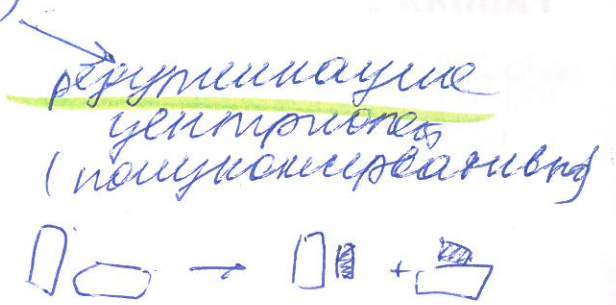 редупликация
центриолей
(полуконсервативно)